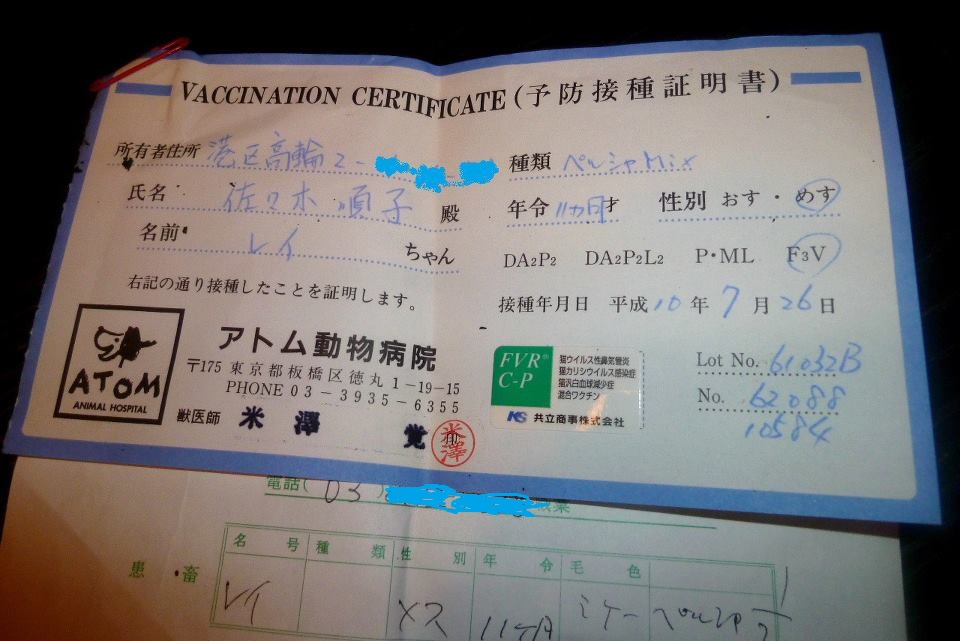 VACCINATION CERTIFICATE (予防接種証明書)
所有者住所 港区高輪2-
氏名 佐々木 順子 殿
名前 レイ ちゃん
右記の通り接種したことを証明します。
ATOM
ANIMAL HOSPITAL
アトム動物病院
〒175 東京都板橋区徳丸1-19-15
PHONE 03-3935-6355
獣医師 米澤 覚
米澤
種類 ペルシャMix
年令 11カ月才 性別 おす・めす
DA2P2 DA2P2L2 P・ML F3V
接種年月日 平成10年7月26日
FVR®
C-P
猫ウイルス性鼻気管炎
猫カリシウイルス感染症
猫汎白血球減少症
混合ワクチン
KS 共立商事株式会社
Lot No. 61032B
No. 62088
10584
電話(03)
患・畜
名号 種類 性別 年令 毛色
レイ メス 11ヶ月 ミケー